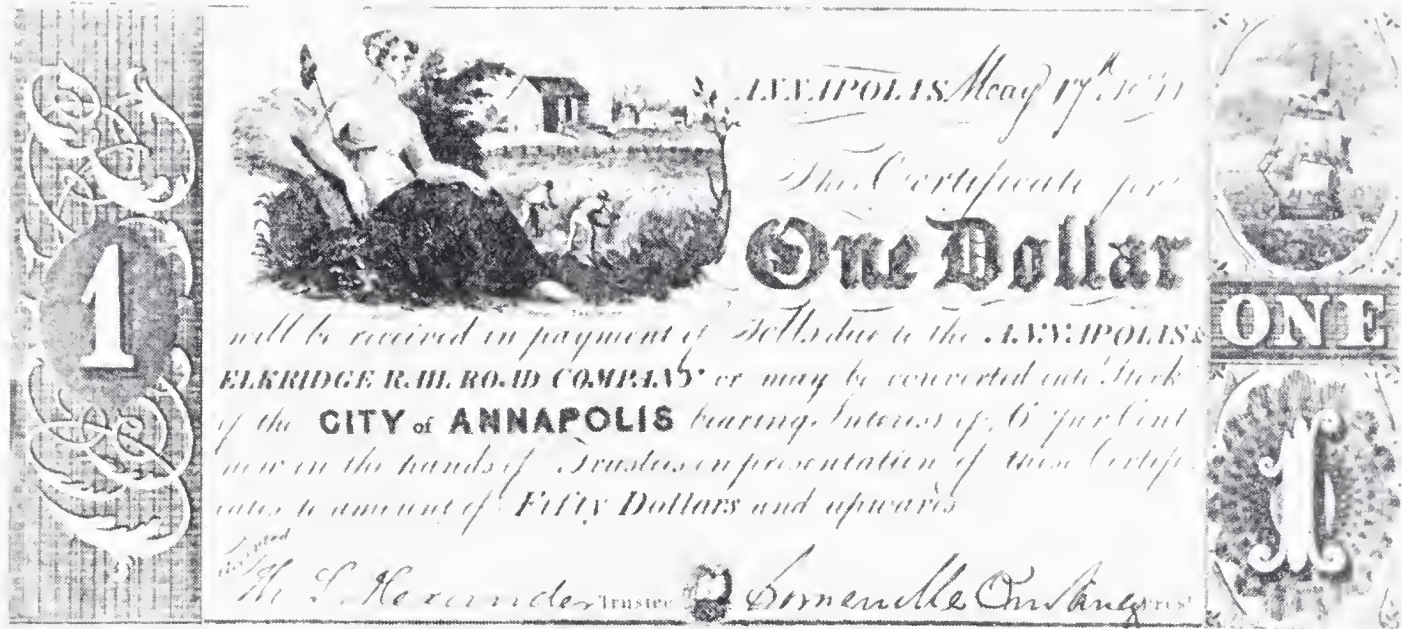 1
ANNAPOLIS May 17th
This Certificate for
One Dollar
will be received in payment of Tolls due to the ANNAPOLIS &
ELKRIDGE RAIL ROAD COMPANY or may be converted into Stock
of the CITY of ANNAPOLIS bearing Interest of 6 per Cent
now in the hands of Trustees on presentation of these Certifi
cates to amount of Fifty Dollars and upwards
Trustee
ONE
1